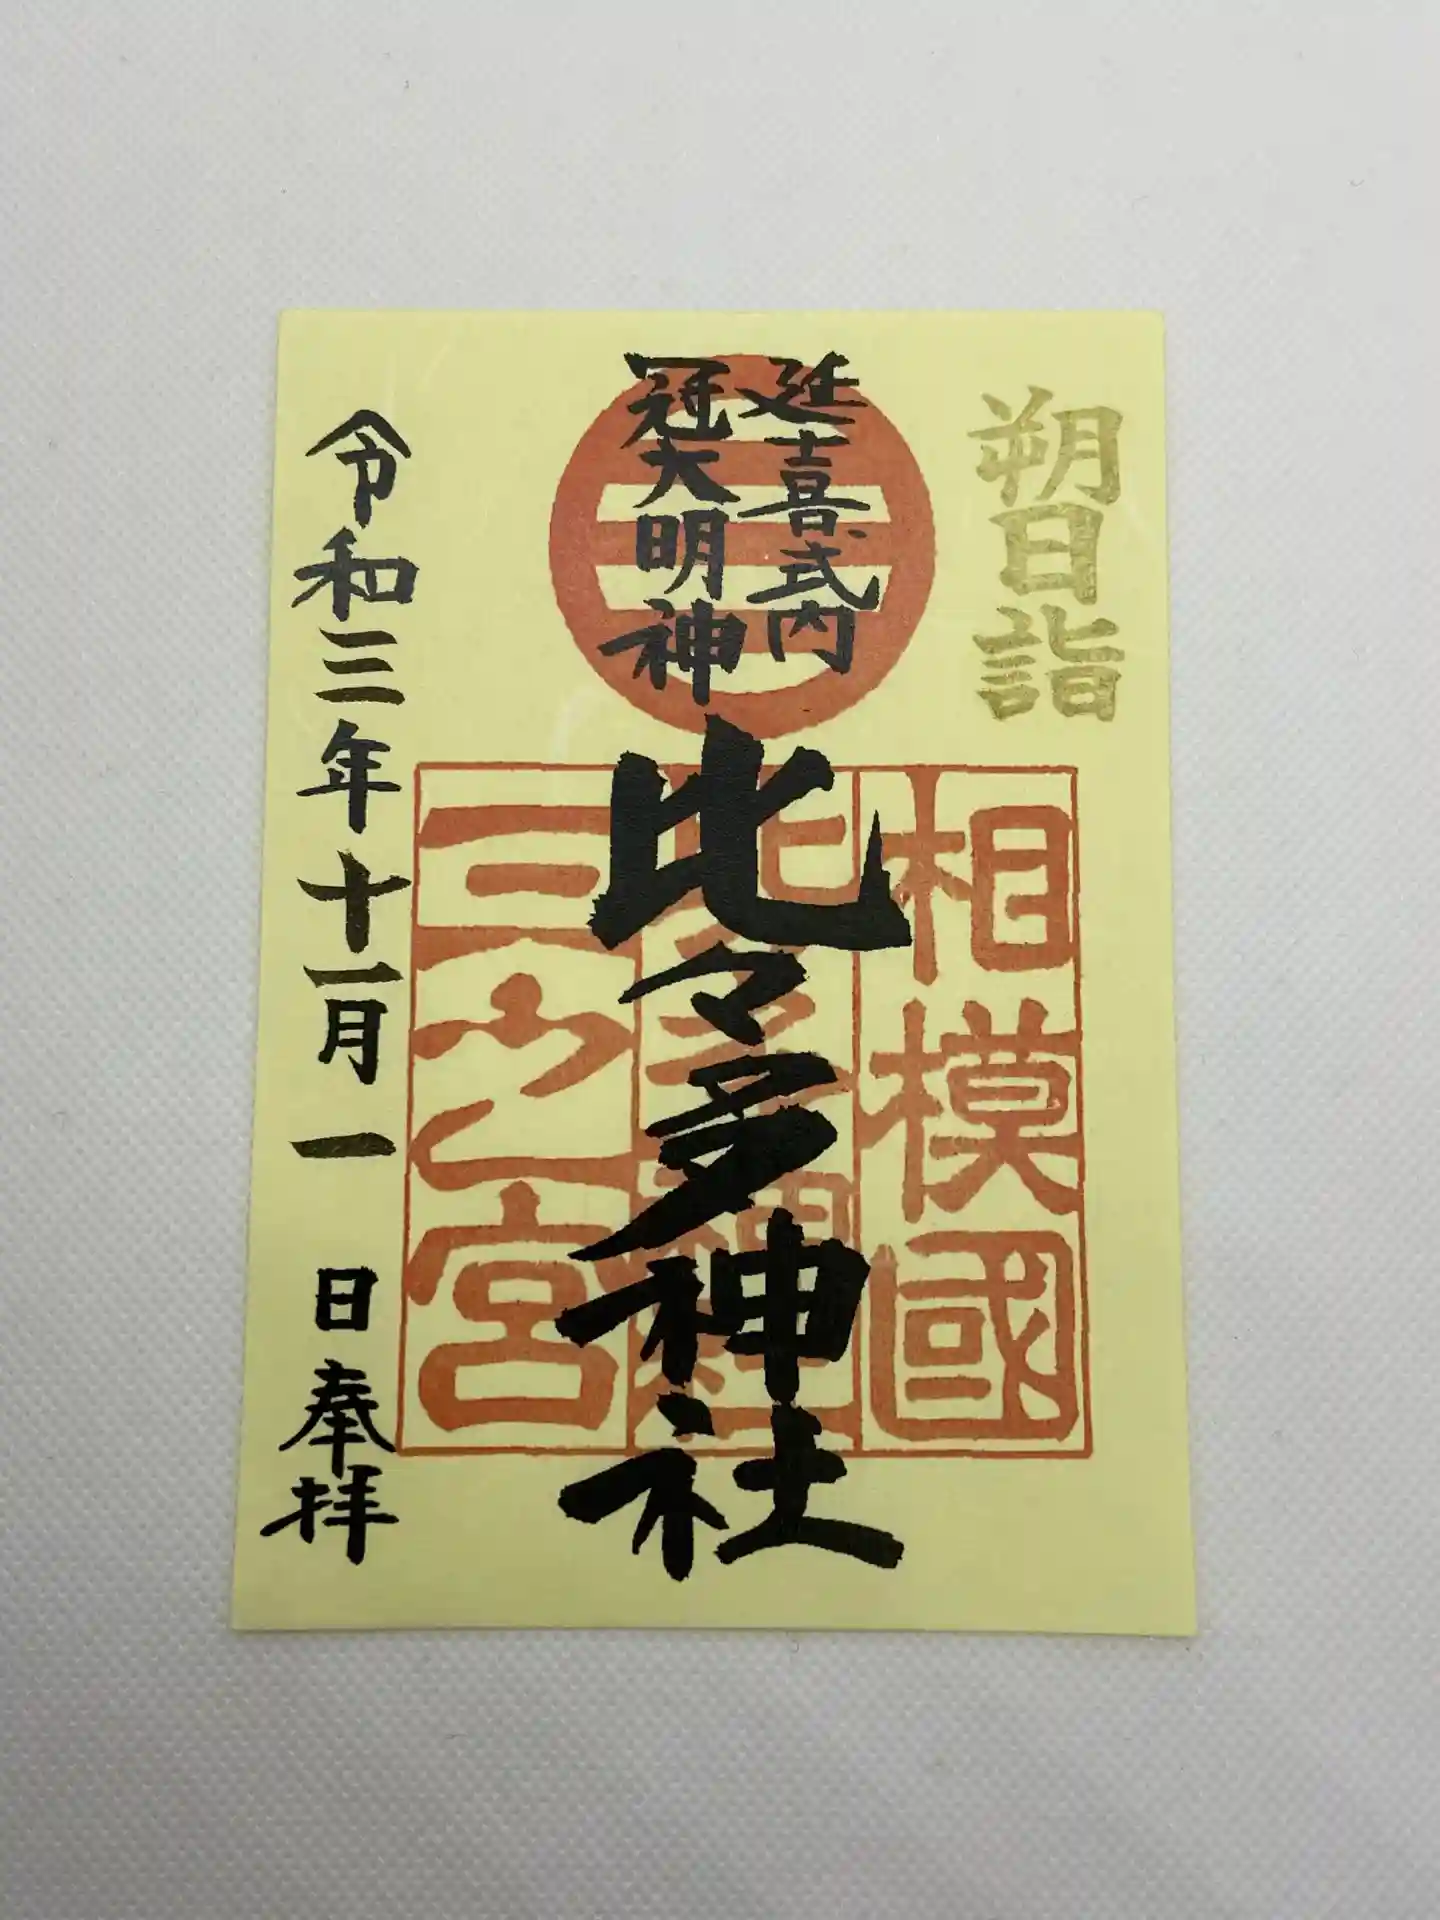 朔日詣
延喜式内
冠大明神
比々多神社
相模國
比々多神社
三之宮
令和三年十一月一日奉拝